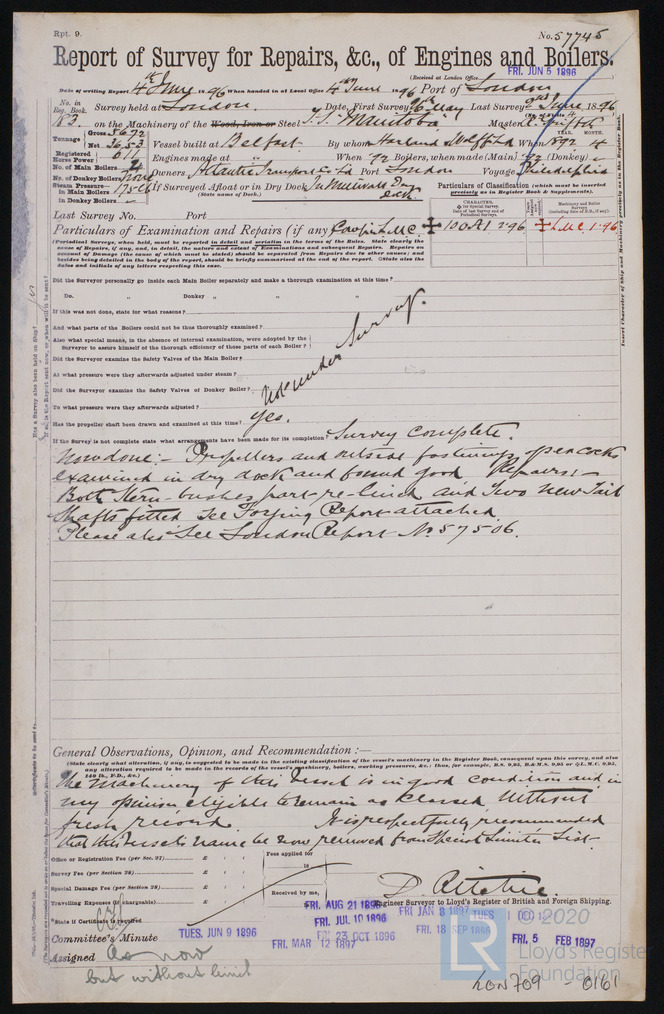 Rpt. 9.
No. 57745
Report of Survey for Repairs, &c., of Engines and Boilers.
(Received at London Office
FRI. JUN 5 1896
Date of writing Report 4th June 1896 When handed in at Local Office 4th June 1896 Port of London
No. in Reg. Book 183. Survey held at London. Date, First Survey May Last Survey June 1896
on the Machinery of the Wood, Iron or Steel S.S. "Manitoba" Master
Tonnage Gross 5672 Net 3653 Vessel built at Belfast By whom Harland Wolff Ld When 1892 4
Registered Horse Power 611 Engines made at " When '92 Boilers, when made (Main) '92 (Donkey)
No. of Main Boilers 2
No. of Donkey Boilers None Owners Atlantic Transport Co Ld Port London Voyage Philadelphia
Steam Pressure in Main Boilers 175 lb If Surveyed Afloat or in Dry Dock In Millwall Dry Dock
in Donkey Boilers
(State name of Dock.)
Particulars of Classification (which must be inserted precisely as in Register Book & Supplements).
Last Survey No. Port
Particulars of Examination and Repairs (if any) 100A1 2.96 L.M.C. 1.96
(Periodical Surveys, when held, must be reported in detail and seriatim in the terms of the Rules. State clearly the cause of Repairs, if any, and, in detail, the nature and extent of Examinations and subsequent Repairs. Repairs on account of Damage (the cause of which must be stated) should be separated from Repairs due to other causes; and besides being detailed in the body of the report, should be briefly summarised at the end of the report. State also the dates and initials of any letters respecting this case.
Did the Surveyor personally go inside each Main Boiler separately and make a thorough examination at this time?
Do. " Donkey " " "
If this was not done, state for what reasons?
And what parts of the Boilers could not be thus thoroughly examined?
Also what special means, in the absence of internal examination, were adopted by the Surveyor to assure himself of the thorough efficiency of those parts of each Boiler?
Did the Surveyor examine the Safety Valves of the Main Boiler?
At what pressure were they afterwards adjusted under steam?
Did the Surveyor examine the Safety Valves of Donkey Boiler?
To what pressure were they afterwards adjusted?
Not under Survey.
Has the propeller shaft been drawn and examined at this time? Yes.
If the Survey is not complete state what arrangements have been made for its completion? Survey complete.
Now done:- Propellers and outside fastenings of sea cocks
examined in dry dock and found good Repairs:-
Both Stern-bushes part re-lined and Two New Tail
Shafts fitted See Forging Report attached
Please also See London Report No 57506.
General Observations, Opinion, and Recommendation:—
(State clearly what alteration, if any, is suggested to be made in the existing classification of the vessel's machinery in the Register Book, consequent upon this survey, and also any alteration required to be made in the records of the vessel's machinery, boilers, working pressures, &c.: thus, for example, B.S. 9,95, B.&M.S. 9,95 or L.M.C. 9,95, 140 lb., F.D., &c.)
The Machinery of this Vessel is in good condition and in
my opinion eligible to remain as Classed, Without
fresh record. It is respectfully recommended
that this Vessel's name be now removed from Special Limits List.
Office or Registration Fee (per Sec. 27) £
Survey Fee (per Section 28) £
Special Damage Fee (per Section 28) £
Travelling Expenses (if chargeable) £
Fees applied for
18
Received by me,
D. Ritchie.
Engineer Surveyor to Lloyd's Register of British and Foreign Shipping.
State if Certificate is required
FRI. AUG 21 1896
FRI. JUL 10 1896
FRI 23 OCT 1896
FRI JAN 8 1897
FRI. 18 SEP 1896
TUES 1 DEC
FRI. 5 FEB 1897
Committee's Minute TUES. JUN 9 1896
FRI. MAR 12 1897
Assigned As now
but without limit
2020
LR
Lloyd's Register
Foundation
LON709 - 0161